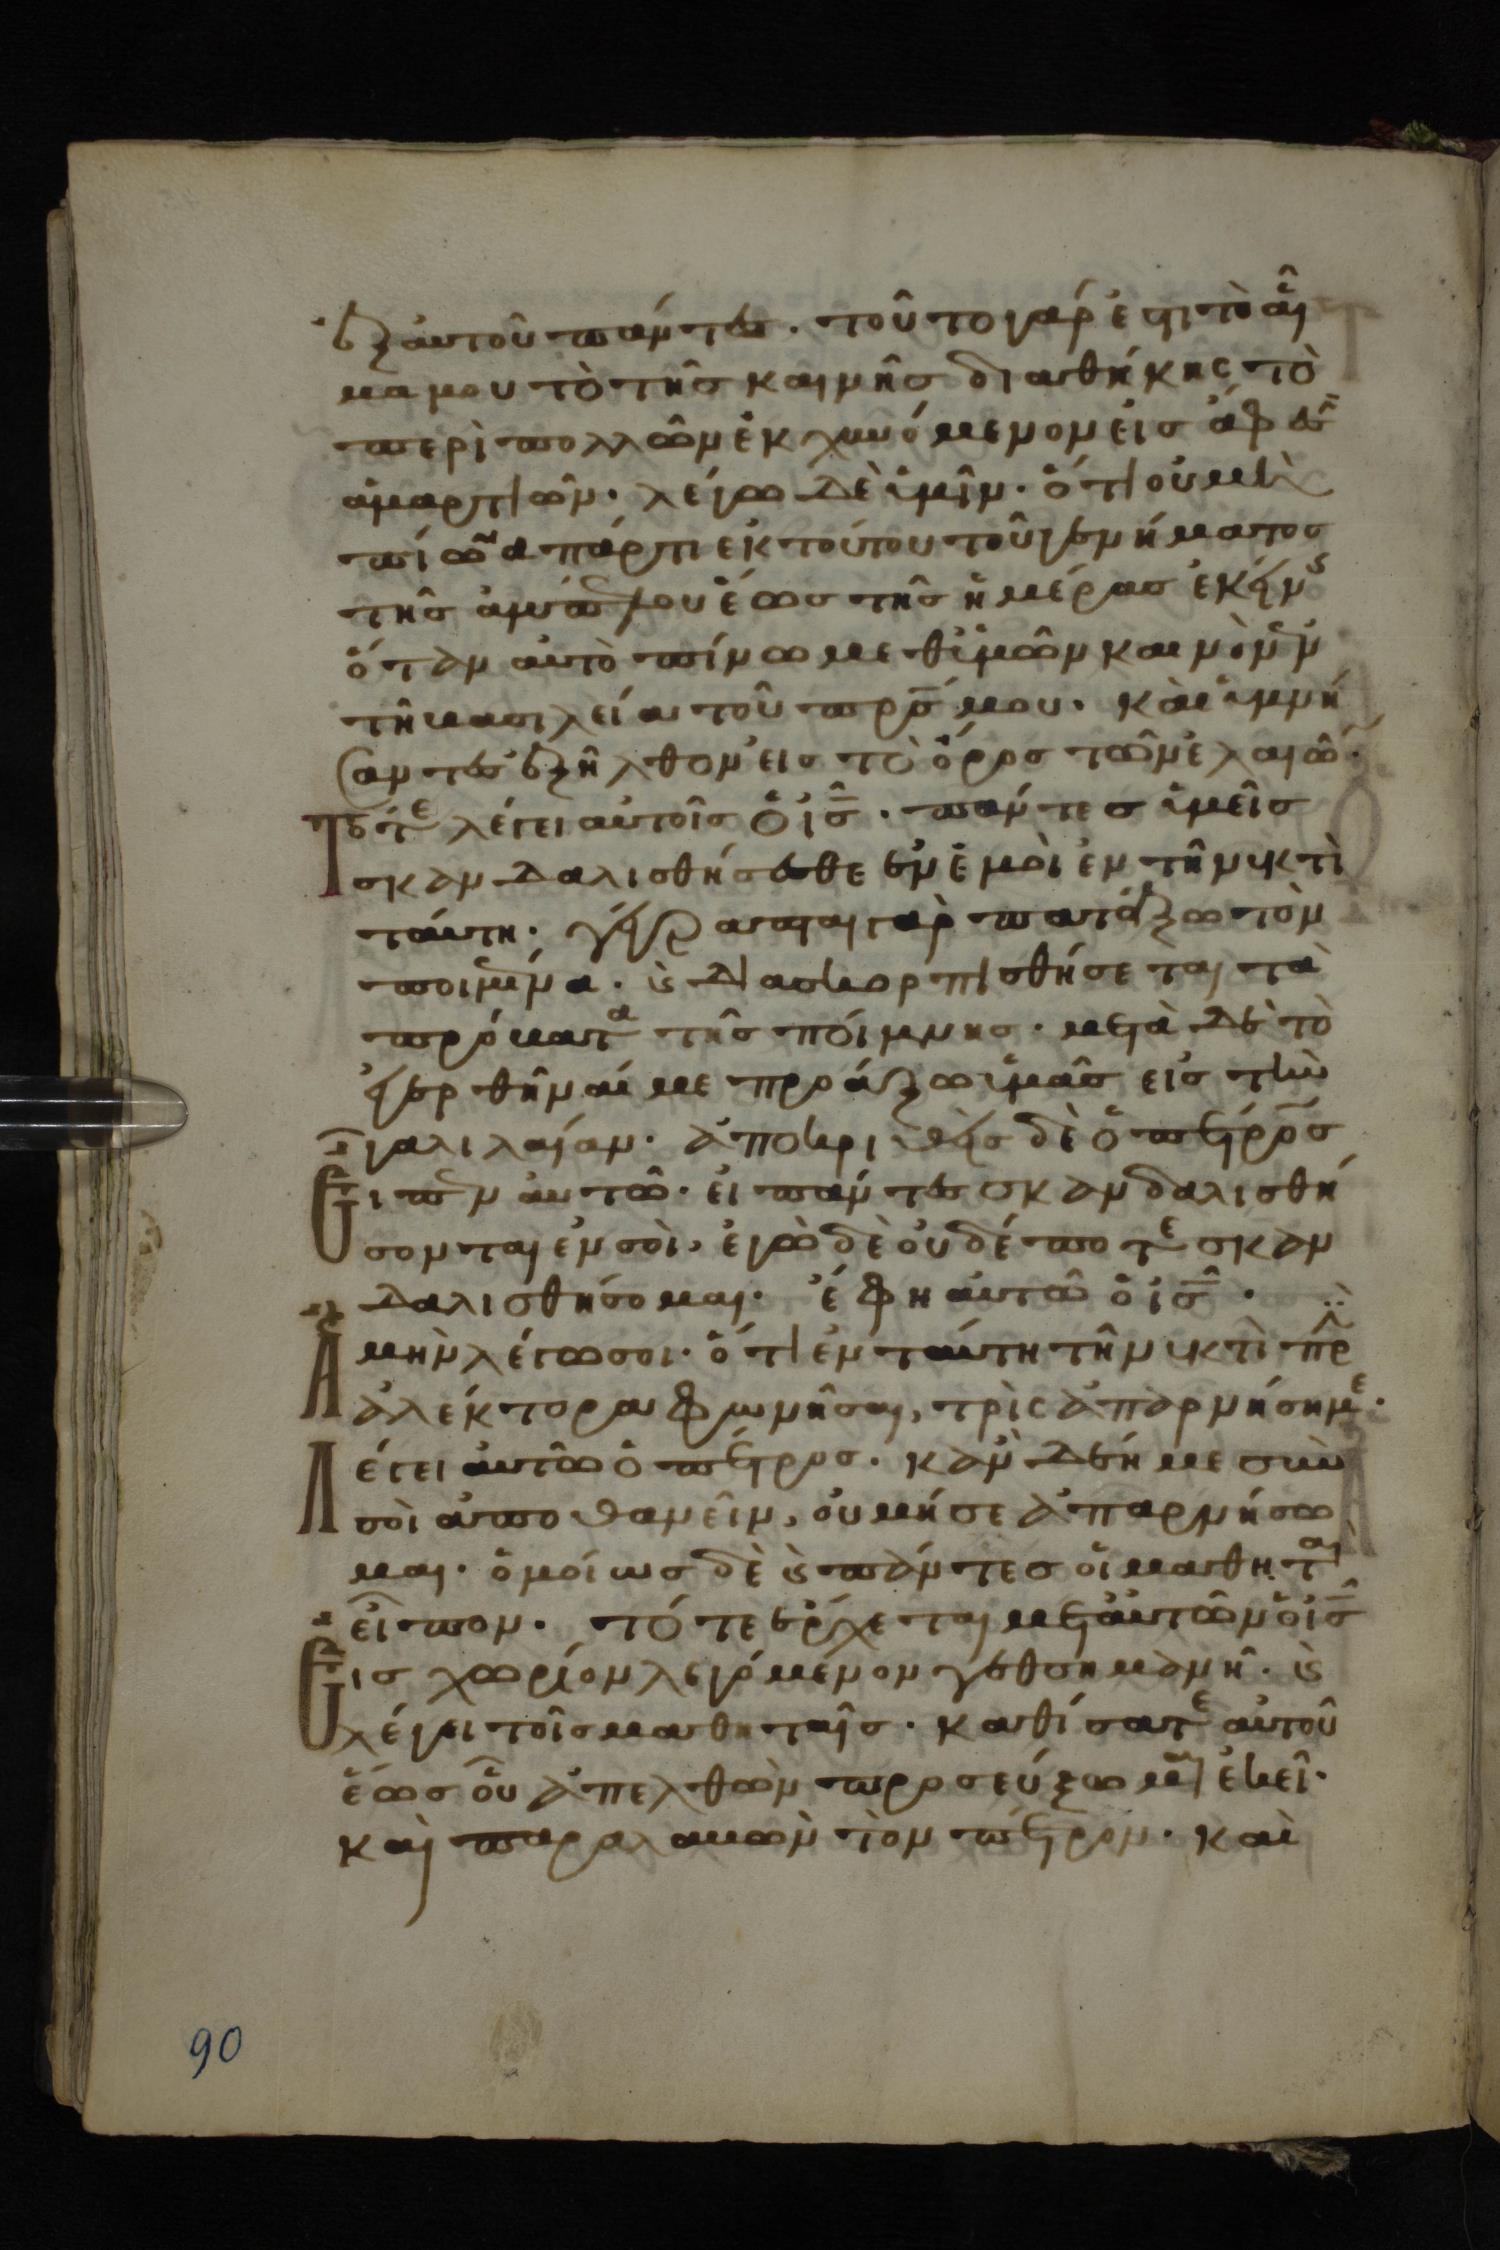 ἐξ αὐτοῦ πάντες. τοῦτο γάρ ἐστι τὸ αἷ
μα μου τὸ τῆς καινῆς διαθήκης τὸ
περὶ πολλῶν ἐκχυνόμενον εἰς ἄφεσιν
ἁμαρτιῶν. λέγω δὲ ὑμῖν. ὅτι οὐ μὴ
πίω ἀπάρτι ἐκ τούτου τοῦ γεννήματος
τῆς ἀμπέλου ἕως τῆς ἡμέρας ἐκείνης
ὅταν αὐτὸ πίνω μεθ ὑμῶν καινὸν ἐν
τῇ βασιλεία τοῦ πρσ μου. καὶ ὑμνή
σαντες ἐξῆλθον εἰς τὸ ὄρος τῶν ἐλαιῶν.
Τότε λέγει αὐτοῖς ὁ ισ. πάντες ὑμεῖς
σκανδαλισθήσεσθε ἐν ἐμοὶ ἐν τῇ νυκτὶ
ταύτη. γέγραπται γὰρ πατάξω τὸν
ποιμένα. καὶ διασκορπισθήσεται τὰ
πρόβατα τῆς ποίμνης. μετὰ δὲ τὸ
ἐγερθῆναί με προάξω ὑμᾶς εἰς τὴν
γαλιλαίαν. ἀποκριθεὶς δὲ ὁ πέτρος
Εἶπεν αὐτῶ. εἰ πάντες σκανδαλισθή
σονται ἐν σοὶ, ἐγὼ δὲ οὐδέποτε σκαν
δαλισθήσομαι. ἔφη αὐτῶ ὁ ισ.
Ἀμὴν λέγω σοι. ὅτι ἐν ταύτη τῇ νυκτὶ πρὶν
ἀλέκτορα φωνῆσαι, τρὶς ἀπαρνήση με.
Λέγει αὐτῶ ὁ πέτρος. κἂν δέη με σὺν
σοὶ ἀποθανεῖν, οὐ μή σε ἀπαρνήσω
μαι. ὁμοίως δὲ καὶ πάντες οἱ μαθηταὶ
εἶπον. τότε ἔρχεται μετ αὐτῶν ὁ ισ
Εἰς χωρίον λεγόμενον γεθσημανῆ. καὶ
λέγει τοῖς μαθηταῖς. καθίσατε αὐτοῦ
ἕως οὗ ἀπελθὼν προσεύξωμαι ἐκεῖ.
καὶ παραλαβὼν τὸν πέτρον. καὶ
90